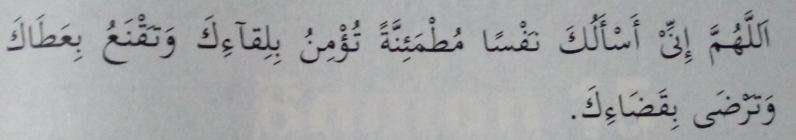 اَللَّهُمَّ إِنِّيْ أَسْأَلُكَ نَفْسًا مُطْمَئِنَّةً تُؤْمِنُ بِلِقَآءِكَ وَتَقْنَعُ بِعَطَاكَ
وَتَرْضَى بِقَضَاءِكَ.